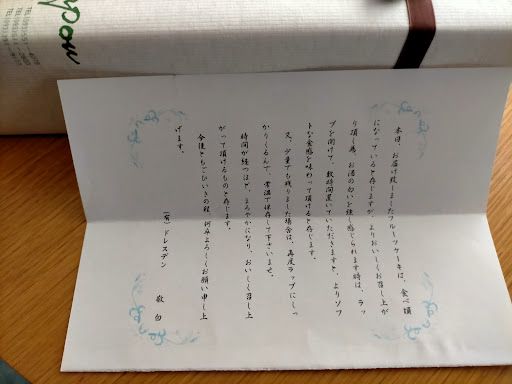 本日、お届け致しましたフルーツケーキは、食べ頃
になっていると存じますが、よりおいしくお召し上が
り頂く為、お酒の匂いを強く感じられます時は、ラッ
プを開けて、数時間置いていただきますと、よりソフ
トな食感を味わって頂けると存じます。
又、少量でも残りました場合は、再度ラップにしっ
かりくるんで、常温で保存して下さいませ。
時間が経つほど、まろやかになり、おいしく召し上
がって頂けるものと存じます。
今後ともごひいきの程、何卒よろしくお願い申し上
げます。
敬白
(有)ドレスデン